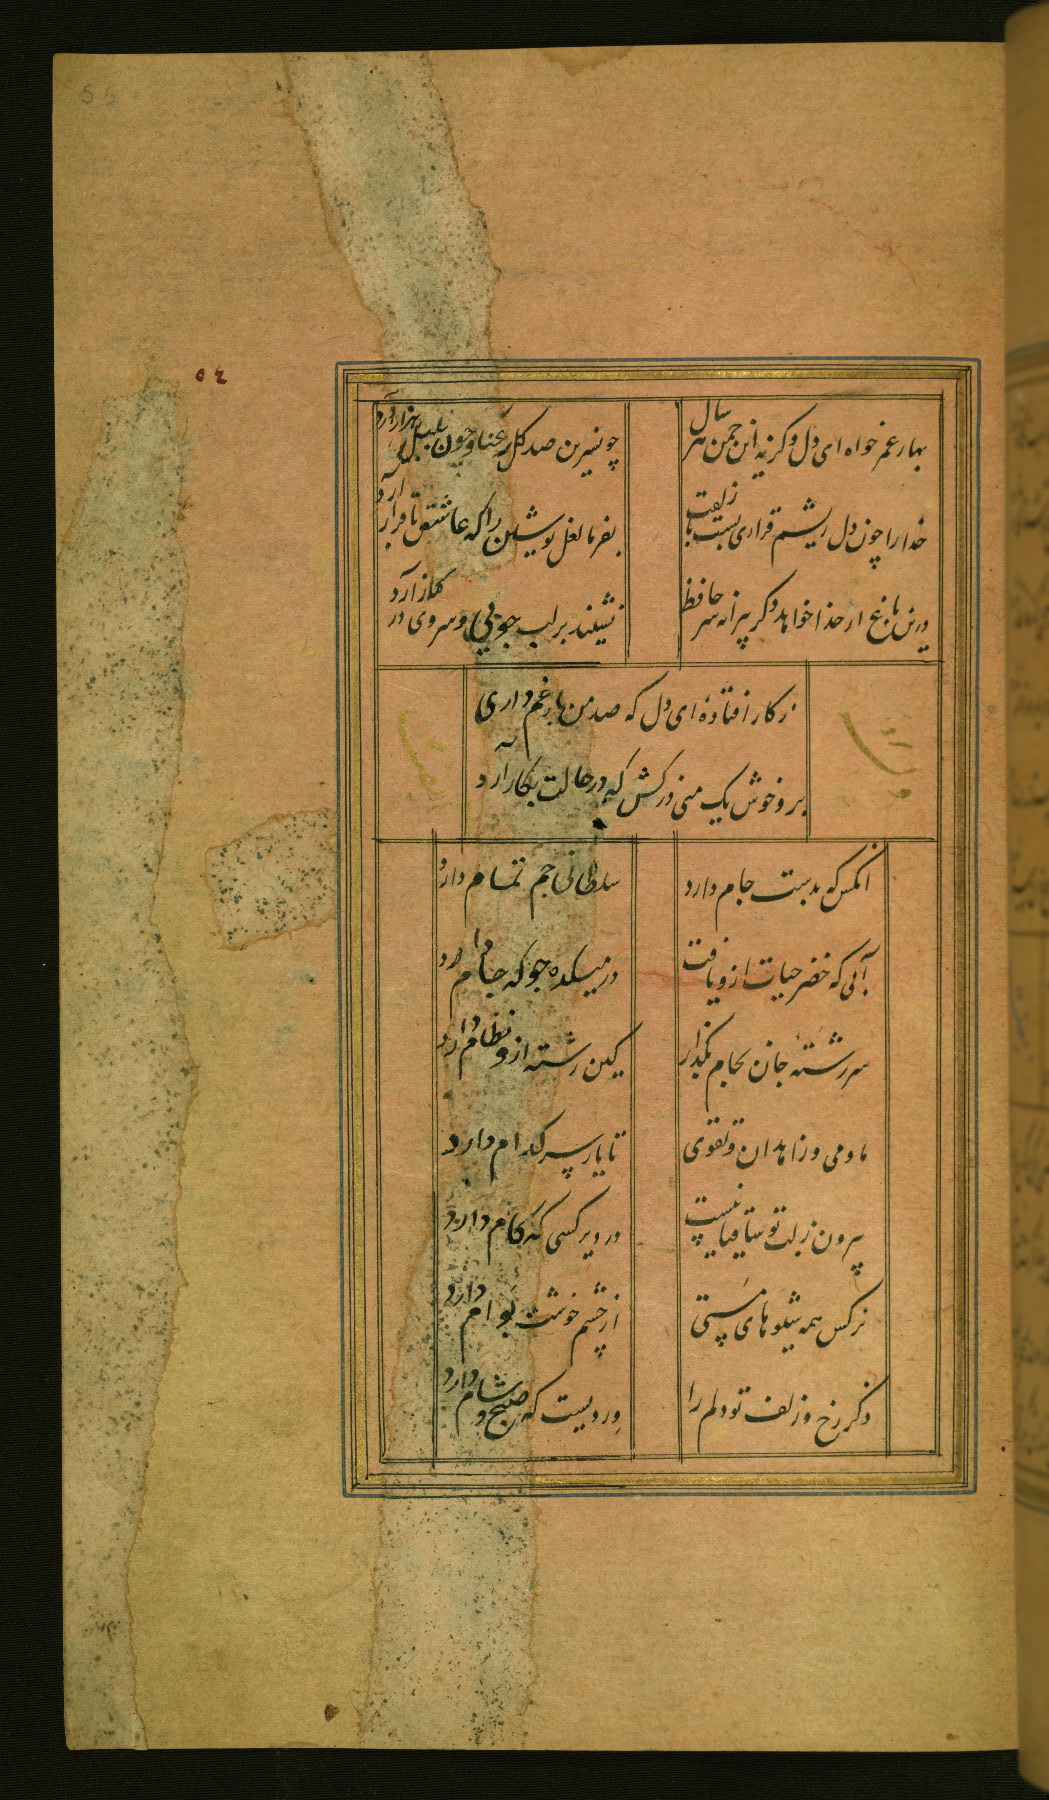 55
٥٤
بهار عمر خواه ای دل وگرنه این چمن هر سال
چو نسرین صد گل رعنا و چون بلبل هزار آرد
خدا را چون دل ریشم قراری بست با زلفت
بفرما لعل نوشین را که تا قرار آرد
درین باغ ار خدا خواهد دگر پیرانه سر حافظ
نشیند بر لب جویی و سروی در کنار آرد
ز کار افتادهٔ ای دل که صد من بار غم داری
برو خوش یک منی درکش که در حالت بکار آرد
آنکس که بدست جام دارد
سلطانی جم تمام دارد
آبی که خضر حیات ازو یافت
در میکده جو که جام دارد
سررشتهٔ جان بجام بگذار
کین رشته ازو نظام دارد
ما و می و زاهدان و تقوی
تا یار سر کدام دارد
بیرون ز لب تو ساقیا نیست
در دور کسی که کام دارد
نرگس همه شیوهای مستی
از چشم خوشت بوام دارد
ذکر رخ و زلف تو دلم را
وردیست که صبح و شام دارد